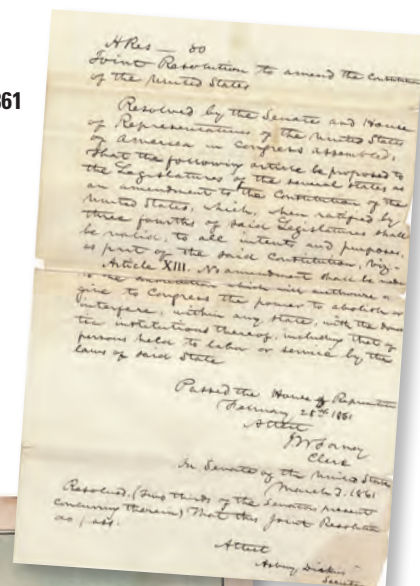 861
H Res — 80
Joint Resolution to amend the Constitution
of the United States
Resolved by the Senate and House
of Representatives of the United States
of America in Congress assembled,
That the following article be proposed to
the Legislatures of the several states as
an amendment to the Constitution of the
United States, which, when ratified by
three fourths of said Legislatures shall
be valid, to all intents and purposes,
as part of the said Constitution, viz:-
Article XIII. No amendment shall be made
to the Constitution which will authorize or
give to Congress the power to abolish or
interfere, within any state, with the domes
tic institutions thereof, including that of
persons held to labor or service by the
laws of said State
Passed the House of Representatives
February 28th 1861
Attest
JW Forney
Clerk
In Senate of the United States
March 2, 1861
Resolved, (two thirds of the Senators present
concurring therein) That this Joint Resolution
do pass.
Attest
Asbury Dickins
Secretary